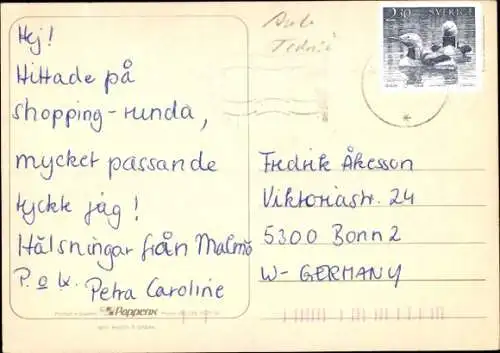 Hej!
Hittade på
shopping-runda,
mycket passande
tyckte jag!
Hälsningar från Malmö
P. o k.
Petra Caroline
2.30 SVERIGE
Fredrik Åkesson
Viktoriastr. 24
5300 Bonn 2
W-GERMANY
Pappenx